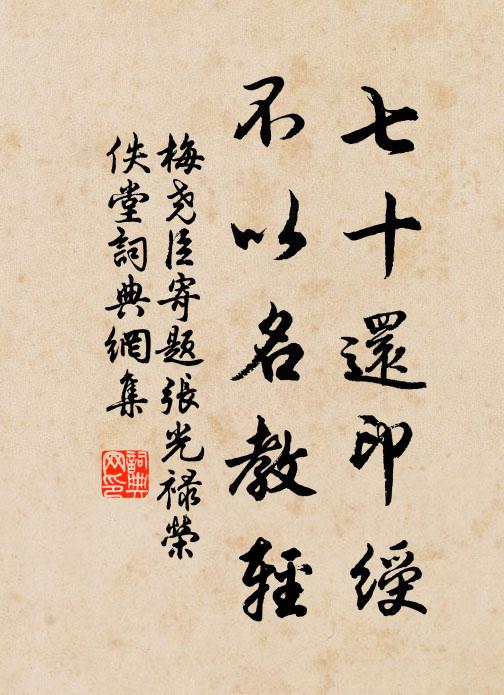 七十還印綬
不以名教輕
梅尧臣寄题張光禄榮
佚堂詞典網集
詞典
网印